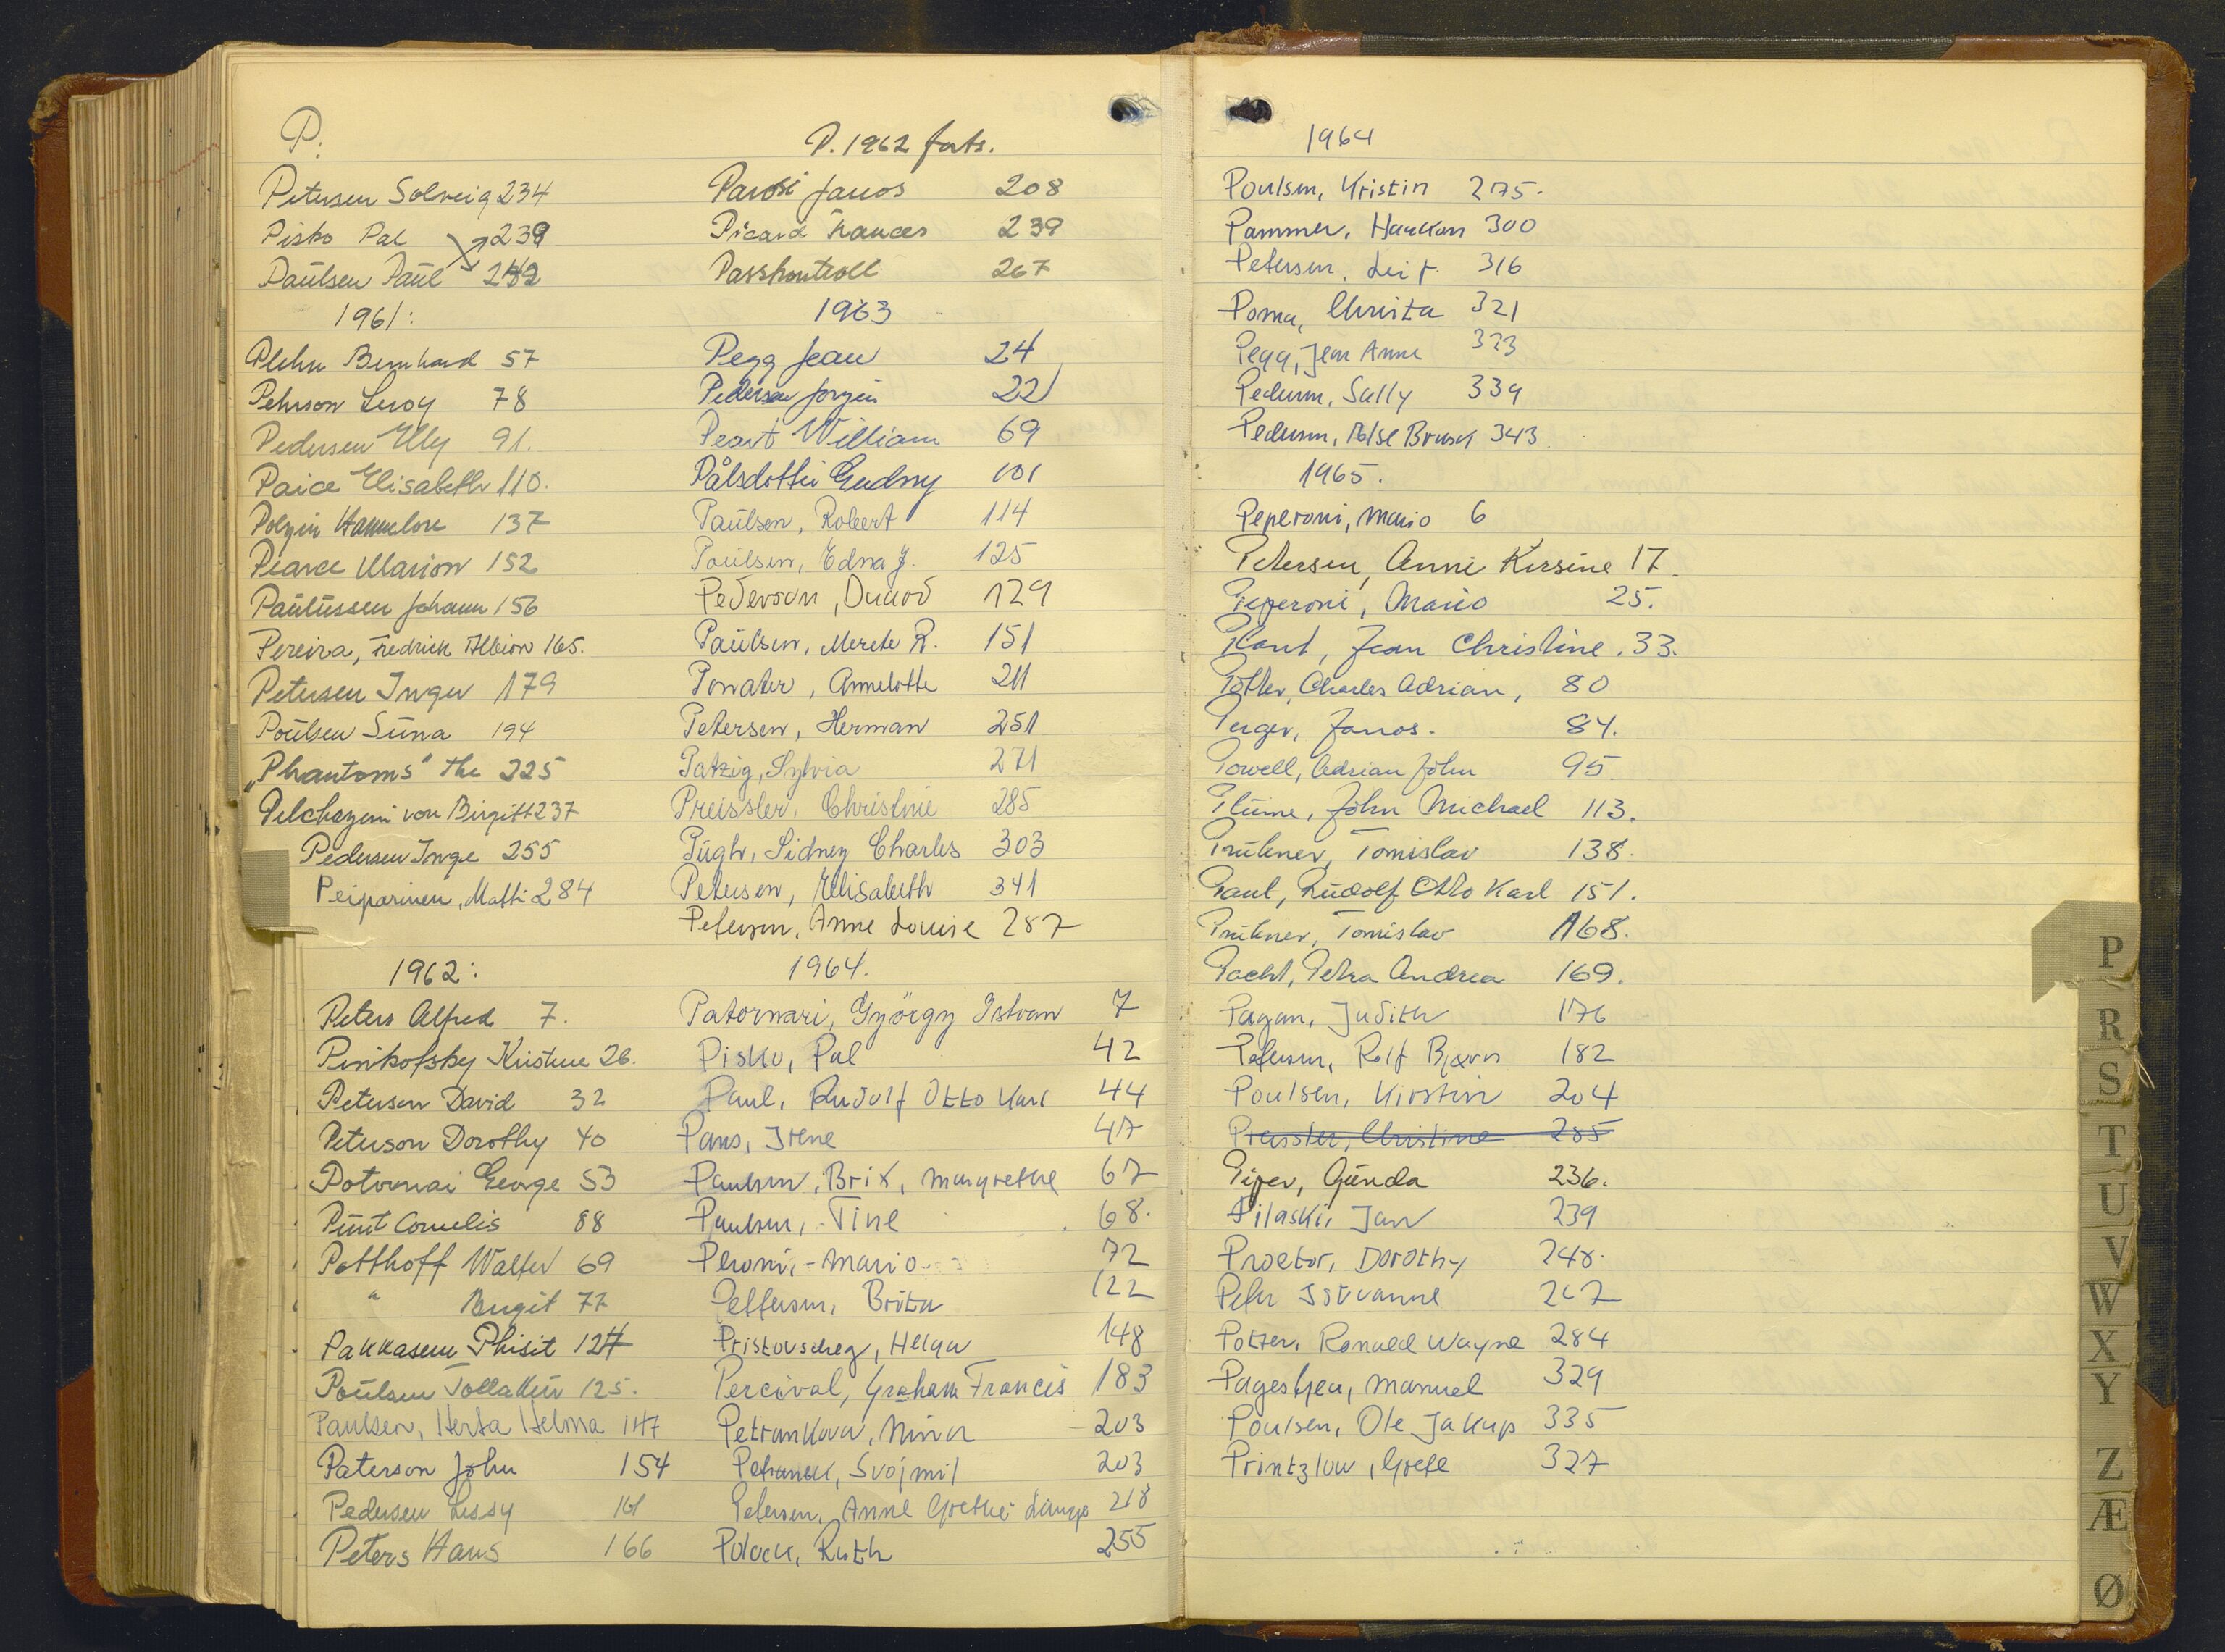 P.
Petersen Solveig 234
Pisko Pal 239
Paulsen Paul 242
1961:
Plehn Bernhard 57
Pehrson Leroy 78
Pedersen Elly 91.
Paice Elisabeth 110.
Polzin Hannelore 137
Pearce Marion 152
Paulussen Johann 156
Pereira, Fredrick Albion 165.
Petersen Inger 179
Poulsen Suna 194
"Phantoms" the 225
von Birgitt 237
Pedersen Inge 255
Peiparinen, Matti 284
1962:
Peters Alfred 7.
Pinkofsky Kristine 26.
Petersen David 32
Peterson Dorothy 40
Potornai George 53
Punt Cornelis 88
Potthoff Walter 69
" Birgit 77
Pakkasem Phisit 124
Poulsen Tollakur 125.
Paulsen, Herta Helma 147
Paterson John 154
Pedersen Lissy 161
Peters Hans 166
P. 1962 forts.
Parosi Janos 208
Picard Frances 239
Passkontroll 267
1963
Pegg Jean 24
Pedersen Jørgen 22
Peart William 69
Pålsdottir Gudny 101
Paulsen, Robert 114
Poulsen, Edna J. 125
Pederson, 129
Paulsen, Merete R. 151
Ponater, Annelotte 211
Petersen, Herman 251
Patzig, Sylvia 271
Preissler, Christine 285
Pugh, Sidney Charles 303
Petersen, Elisabeth 341
Petersen, Anne Louise 287
1964.
Patornari, György Istvan 7
Pisko, Pal 42
Paul, Rudolf Otto Karl 44
Pans, Irene 47
Paulsen, Brix, Margrethe 67
Paulsen, Tine 68.
Peroni, - Mario 72
Pettersen, Brita 122
Pristouscheg, Helga 148
Percival, Graham Francis 183
Petrankova, Nina 203
Petranek, Svojmil 203
Petersen, Anne Grethe 218
Polack, Ruth 255
1964
Poulsen, Kristin 275.
Pammer, Haakon 300
Petersen, Leif 316
Poma, Christa 321
Pegg, Jean Anne 323
Pedersen, Sally 339
Pedersen, Brusk 343.
1965.
Peperoni, Mario 6
Petersen, Anni Kirsine 17.
Peperoni, Mario 25.
Plant, Jean Christine. 33.
Potter, Charles Adrian, 80
Perger, Janos. 84.
Powell, Adrian John 95.
Plume, John Michael 113.
Prukner, Tomislav 138.
Paul, Rudolf Otto Karl 151.
Prukner, Tomislav 168.
Pacht, Petra Andrea 169.
Pagan, Judith 176
Petersen, Rolf Bjørn 182
Poulsen, Kirstin 204
Preissler, Christine 285
Piper, Gunda 236.
Pilaski, Jan 239
Proctor, Dorothy 248.
Peter Istvanne 267
Potter, Ronald Wayne 284
Manuel 329
Poulsen, Ole Jakup 335
Printzlow, Grete 327
P
R
S
T
U
V
W
X
Y
Z
Æ
Ø